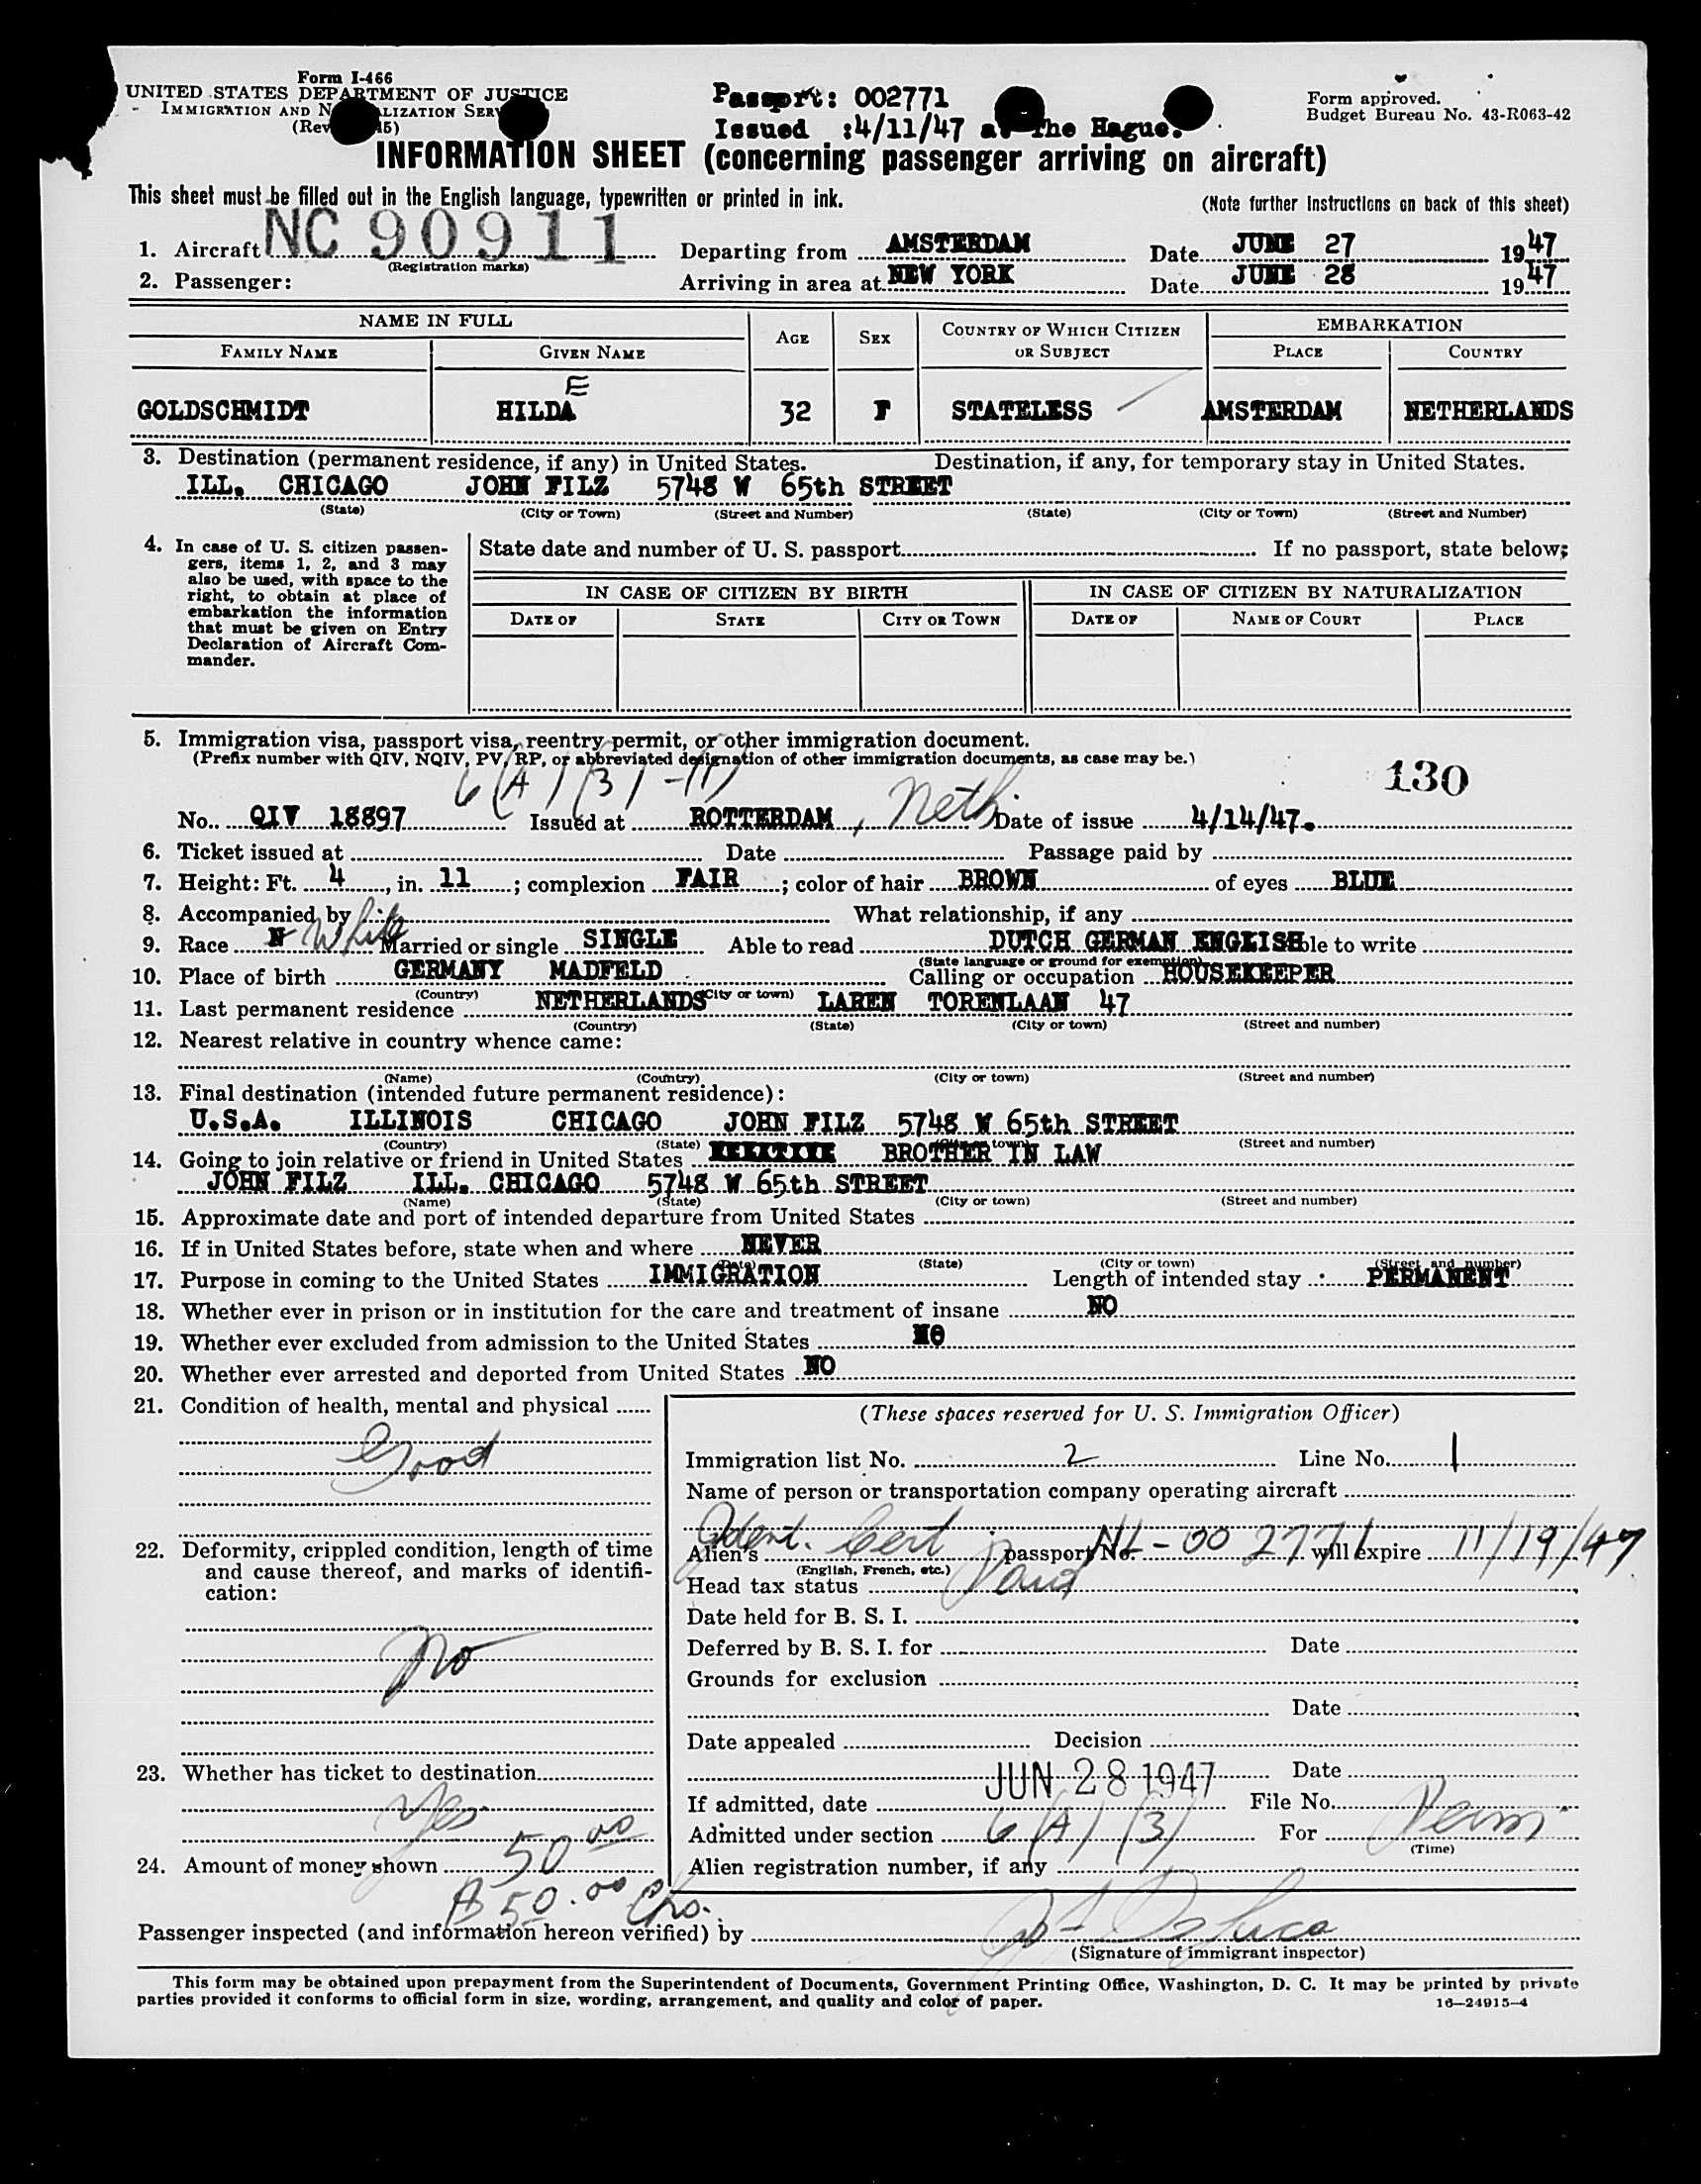 Form I-466
UNITED STATES DEPARTMENT OF JUSTICE
IMMIGRATION AND N LIZATION SER
(Rev 45)
Passport: 002771
Issued :4/11/47 at The Hague.
Form approved.
Budget Bureau No. 43-R063-42
INFORMATION SHEET (concerning passenger arriving on aircraft)
This sheet must be filled out in the English language, typewritten or printed in ink.
(Note further instructions on back of this sheet)
1. Aircraft NC 90911 Departing from AMSTERDAM Date JUNE 27 1947
(Registration marks)
2. Passenger: Arriving in area at NEW YORK Date JUNE 28 1947
NAME IN FULL AGE SEX COUNTRY OF WHICH CITIZEN OR SUBJECT EMBARKATION
FAMILY NAME GIVEN NAME PLACE COUNTRY
E
GOLDSCHMIDT HILDA 32 F STATELESS AMSTERDAM NETHERLANDS
3. Destination (permanent residence, if any) in United States. Destination, if any, for temporary stay in United States.
ILL. CHICAGO JOHN FILZ 5748 W 65th STREET
(State) (City or Town) (Street and Number) (State) (City or Town) (Street and Number)
4. In case of U. S. citizen passen-
gers, items 1, 2, and 3 may
also be used, with space to the
right, to obtain at place of
embarkation the information
that must be given on Entry
Declaration of Aircraft Com-
mander.
State date and number of U. S. passport If no passport, state below;
IN CASE OF CITIZEN BY BIRTH IN CASE OF CITIZEN BY NATURALIZATION
DATE OF STATE CITY OR TOWN DATE OF NAME OF COURT PLACE
5. Immigration visa, passport visa, reentry permit, or other immigration document.
(Prefix number with QIV, NQIV, PV, RP, or abbreviated designation of other immigration documents, as case may be.)
130
6(A)(3)-(1)
No. QIV 18897 Issued at ROTTERDAM, Neth Date of issue 4/14/47.
6. Ticket issued at Date Passage paid by
7. Height: Ft. 4, in. 11; complexion FAIR; color of hair BROWN of eyes BLUE
8. Accompanied by What relationship, if any
9. Race White Married or single SINGLE Able to read DUTCH GERMAN ENGLISH ble to write
(State language or ground for exemption)
10. Place of birth GERMANY MADFELD Calling or occupation HOUSEKEEPER
(Country) (City or town)
11. Last permanent residence NETHERLANDS LAREN TORENLAAN 47
(Country) (State) (City or town) (Street and number)
12. Nearest relative in country whence came:
(Name) (Country) (City or town) (Street and number)
13. Final destination (intended future permanent residence):
U.S.A. ILLINOIS CHICAGO JOHN FILZ 5748 W 65th STREET
(Country) (State) (City or town) (Street and number)
14. Going to join relative or friend in United States BROTHER IN LAW
JOHN FILZ ILL. CHICAGO 5748 W 65th STREET
(Name) (State) (City or town) (Street and number)
15. Approximate date and port of intended departure from United States
16. If in United States before, state when and where NEVER
(Date) (State) (City or town) (Street and number)
17. Purpose in coming to the United States IMMIGRATION Length of intended stay PERMANENT
18. Whether ever in prison or in institution for the care and treatment of insane NO
19. Whether ever excluded from admission to the United States NO
20. Whether ever arrested and deported from United States NO
21. Condition of health, mental and physical
Good
22. Deformity, crippled condition, length of time
and cause thereof, and marks of identifi-
cation:
No
23. Whether has ticket to destination
Yes
24. Amount of money shown 50 00
$50.00 Cks.
(These spaces reserved for U. S. Immigration Officer)
Immigration list No. 2 Line No. 1
Name of person or transportation company operating aircraft
Alien's Ident. Cert. passport No. NL-002771 will expire 11/19/47
(English, French, etc.)
Head tax status Paid
Date held for B. S. I.
Deferred by B. S. I. for Date
Grounds for exclusion
Date
Date appealed Decision
Date
If admitted, date JUN 28 1947 File No.
Admitted under section 6(A)(3) For Perm.
(Time)
Alien registration number, if any
Passenger inspected (and information hereon verified) by
(Signature of immigrant inspector)
This form may be obtained upon prepayment from the Superintendent of Documents, Government Printing Office, Washington, D. C. It may be printed by private
parties provided it conforms to official form in size, wording, arrangement, and quality and color of paper.
16—24915-4